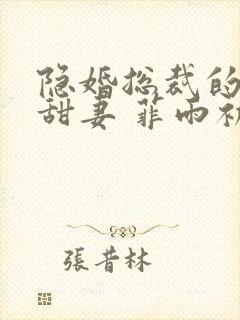 隐婚总裁的
甜妻 菲雨
張昔林